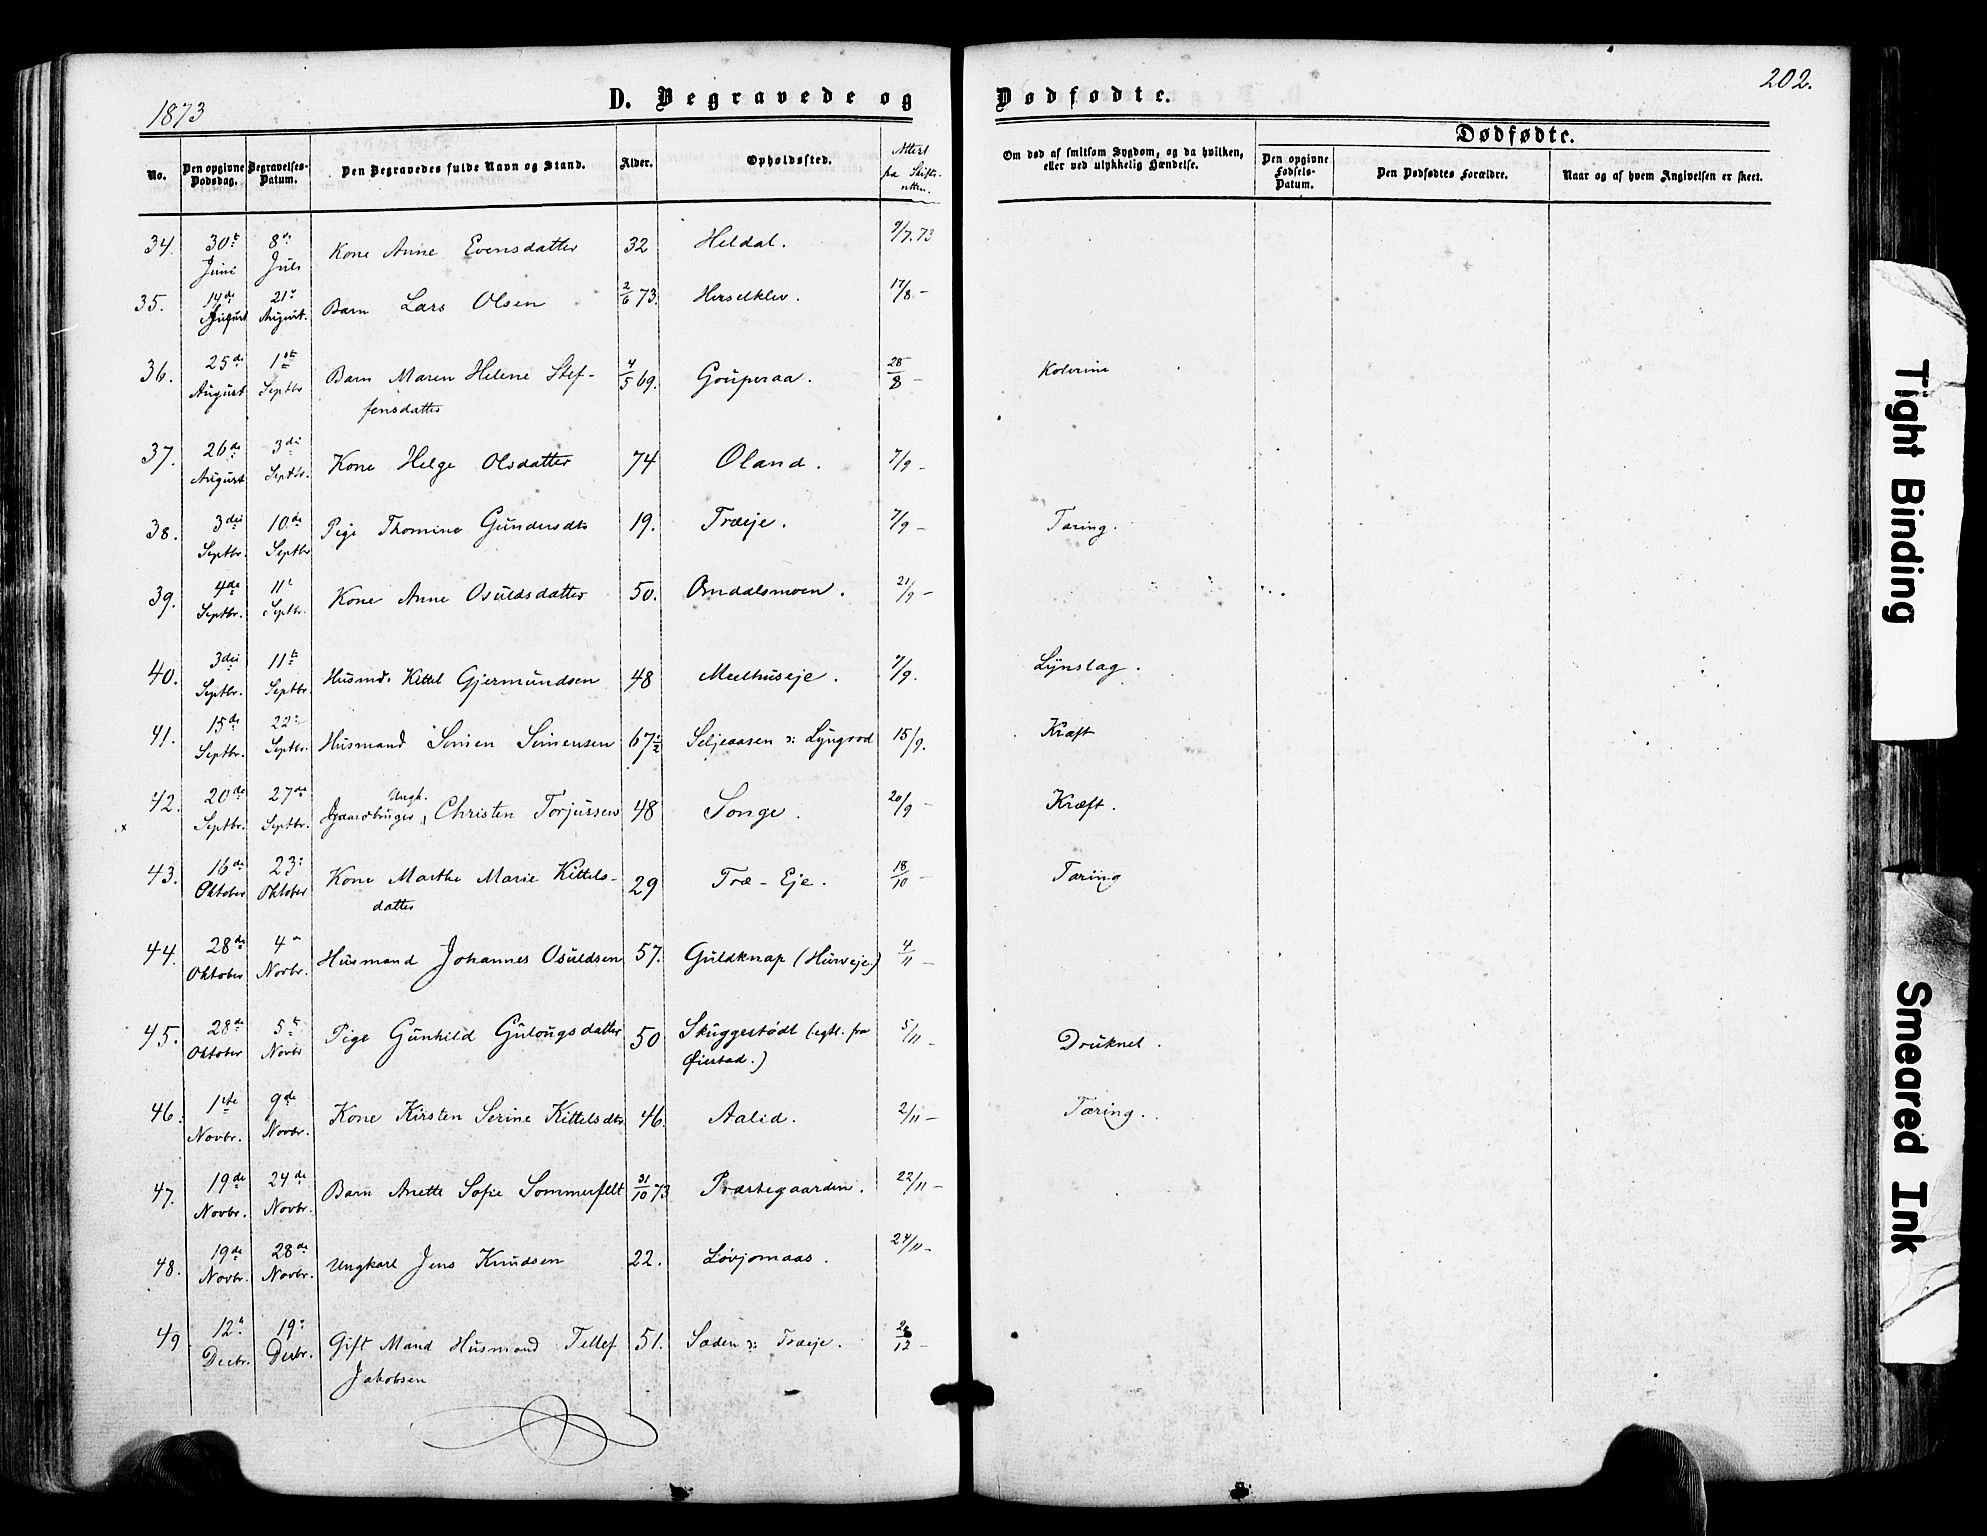 1873
D. Begravede og Dødfødte.
202.
No.
Den opgivne Dødsdag.
Begravelses-Datum.
Den Begravedes fulde Navn og Stand.
Alder.
Opholdssted.
Attest fra Skifteretten.
Om død af smitsom Sygdom, og da hvilken, eller ved ulykkelig Hændelse.
Dødfødte.
Den opgivne Fødsels-Datum.
Den Dødfødtes Forældre.
Naar og af hvem Angivelsen er skeet.
34. 30te Juni 8de Juli Kone Anne Evensdatter 32 Heldal. 9/7.73
35. 14de August 21de August. Barn Lars Olsen 2/6 73. Herselklev. 17/8 -
36. 25de August 1ste Septbr Barn Maren Helene Stef- 4/5 69. Gouperaa. 28/8 - Kolerine
fensdatter
37. 26de August 3die Septbr. Kone Helge Olsdatter 74 Oland. 7/9 -
38. 3die Septbr. 10de Septbr Pige Thomine Gundersdtr 19. Træeje. 7/9 - Tæring.
39. 4de Septbr. 11te Septbr. Kone Anne Osuldsdatter 50. Omdalsmoen. 21/9 -
40. 3die Septbr. 11te Septbr. Husmd. Kittel Gjermundsen 48 Meelhuseje. 9/9. Lynslag.
41. 15de Septbr. 22de Septbr. Husmand Simen Simensen 67½ Seljeaasen v: Lyngrod 15/9. Kræft
42. 20de Septbr. 27de Septbr. Gaardbruger, Ungk. Christen Torjussen 48 Songe. 20/9 - Kræft.
43. 16de Oktober 23de Oktober Kone Marthe Marie Kittels- 29 Træ-Eje. 18/10 - Tæring
datter
44. 28de Oktober 4de Novbr. Husmand Johannes Osuldsen 57. Guldknap (Hurveje.) 4/11 -
45. 28de Oktober 5te Novbr Pige Gunhild Gulougsdatter 50 Skuggestødt (egtl. fra 5/11 - Druknet.
Øiestad.)
46. 1ste Novbr. 9de Novbr. Kone Kirsten Serine Kittelsdtr 46. Aalid. 2/11 - Tæring.
47. 19de Novbr. 24de Novbr. Barn Anette Sofie Sommerfelt 31/10 73 Præstegaarden. 22/11 -
48. 19de Novbr. 28de Novbr. Ungkarl Jens Knudsen 22. Løvjomaas. 24/11 -
49 12te Decbr. 19de Decbr. Gift Mand Husmand Tellef 51. Saden v: Træeje. 12 -
Jakobsen
Tight Binding
Smeared Ink